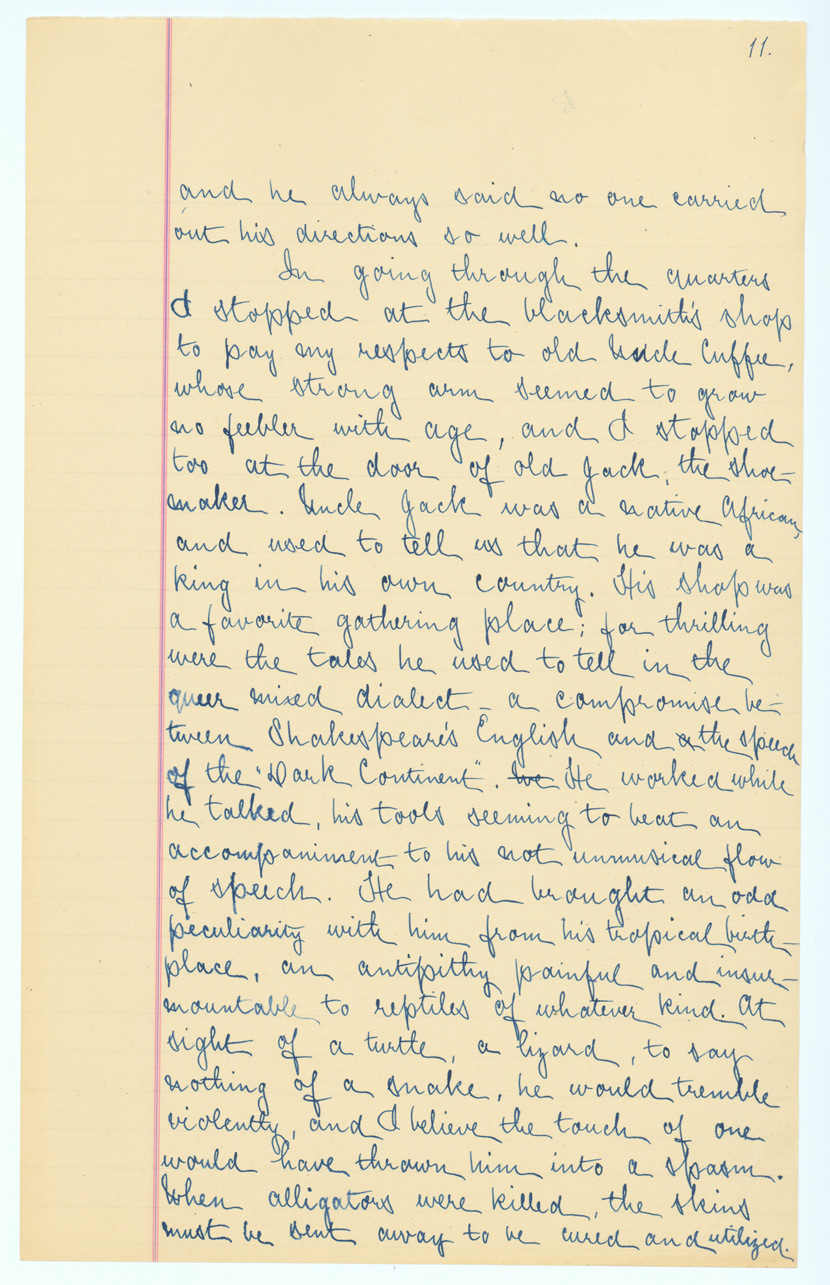 11.
and he always said no one carried
out his directions so well.
In going through the quarters
I stopped at the blacksmith's shop
to pay my respects to old Uncle Cuffee,
whose strong arm seemed to grow
no feebler with age, and I stopped
too at the door of old Jack, the shoe-
maker. Uncle Jack was a native African,
and used to tell us that he was a
king in his own country. His shop was
a favorite gathering place; for thrilling
were the tales he used to tell in the
queer mixed dialect - a compromise be-
tween Shakespeare's English and the speech
of the "Dark Continent". We He worked while
he talked, his tools seeming to beat an
accompaniment to his not unmusical flow
of speech. He had brought an odd
peculiarity with him from his tropical birth-
place, an antipithy painful and insur-
mountable to reptiles of whatever kind. At
sight of a turtle, a lizard, to say
nothing of a snake, he would tremble
violently, and I believe the touch of one
would have thrown him into a spasm.
When alligators were killed, the skins
must be sent away to be cured and utilized.